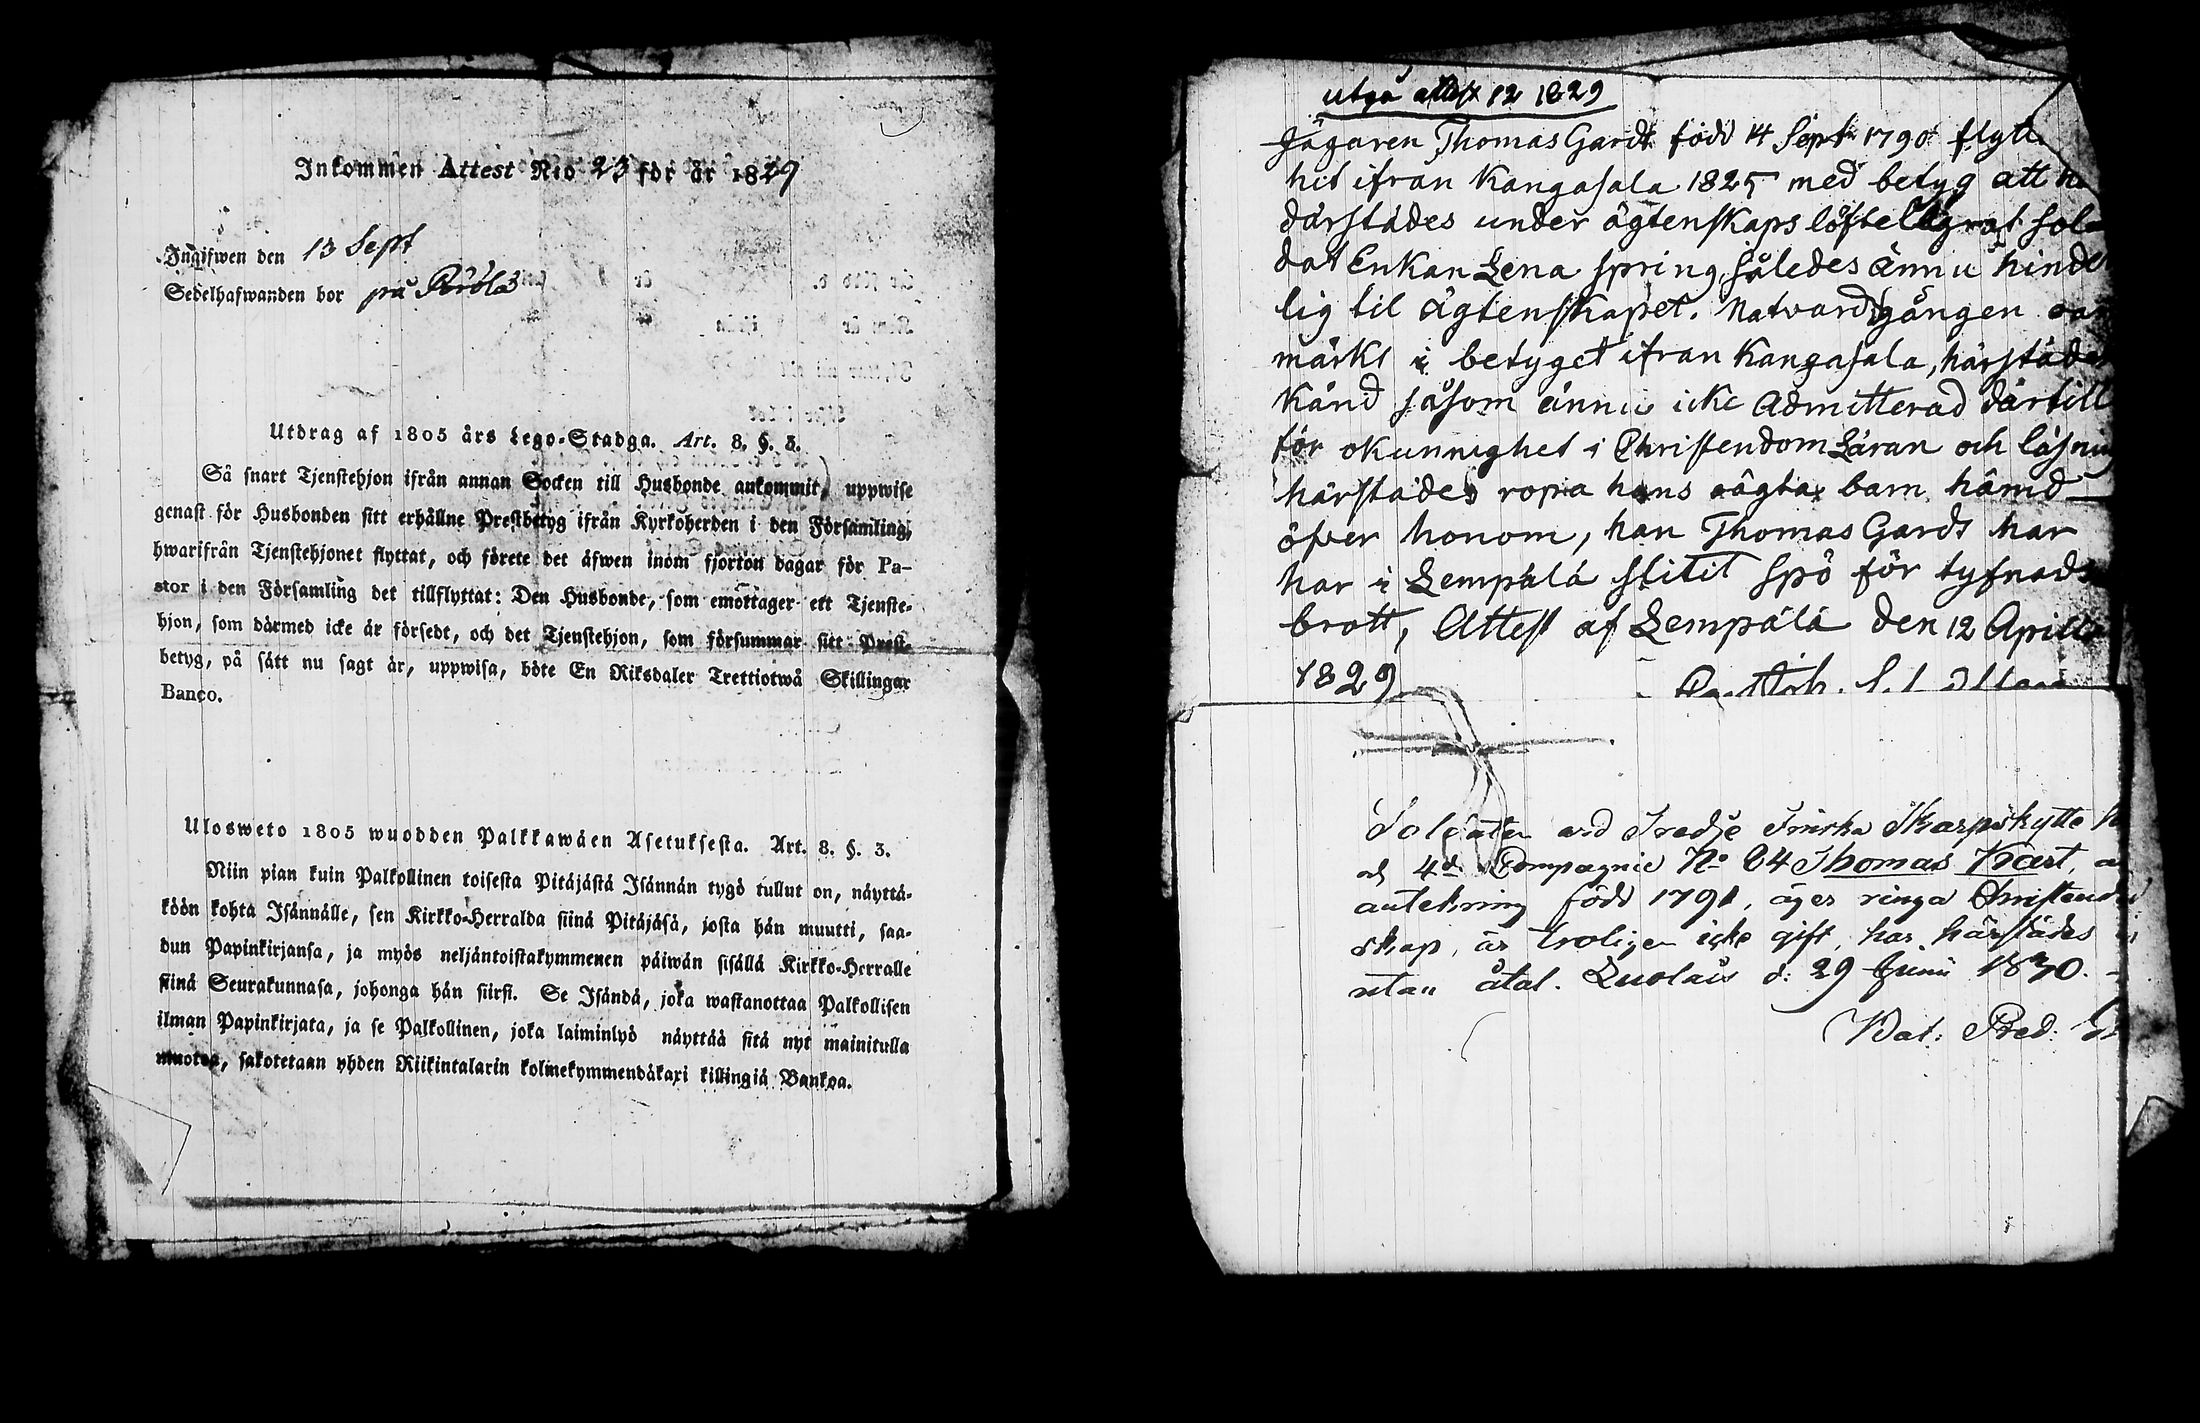 Inkommen Attest N:o 23 för år 1829
Ingifwen den 13 Sept
Sedelhafwanden bor på
Utdrag af 1805 års Lego-Stadga. Art. 8. §. 3.
Så snart Tjenstehjon ifrån annan Socken till Husbonde ankommit, uppwise
genast för Husbonden sitt erhållne Prestbetyg ifrån Kyrkoherden i den Församling,
hwarifrån Tjenstehjonet flyttat, och förete det äfwen inom fjorton dagar för Pa-
stor i den Församling det tillflyttat: Den Husbonde, som emottager ett Tjenste-
hjon, som därmed icke är försedt, och det Tjenstehjon, som försummar sitt Prest-
betyg, på sätt nu sagt är, uppwisa, böte En Riksdaler Trettiotwå Skillingar
Banco.
Ulosweto 1805 wuodden Palkkawäen Asetuksesta. Art. 8. §. 3.
Niin pian kuin Palkollinen toisesta Pitäjästä Isännän tygö tullut on, näyttä-
köön kohta Isännälle, sen Kirkko-Herralda siinä Pitäjäsä, josta hän muutti, saa-
dun Papinkirjansa, ja myös neljäntoistakymmenen päiwän sisällä Kirkko-Herralle
siinä Seurakunnasa, johonga hän siirsi. Se Isändä, joka wastanottaa Palkollisen
ilman Papinkirjata, ja se Palkollinen, joka laiminlyö näyttää sitä nyt mainitulla
muotoa, sakotetaan yhden Riikintalarin kolmekymmendäkaxi killingiä Bankoa.
utgå attest 12 1829
Jägaren Thomas Gardt född 14 Sept 1790 flytt
hit ifrån Kangasala 1825 med betyg att
därstädes under ägtenskaps löfte lägrat sol
dat Enkan Lena Spring, således ännu hinder
lig til ägtenskapet. Natvardsgången
märkt i betyget ifrån Kangasala, härstädes
känd såsom ännu icke admitterad därtill
för okunnighet i Christendoms Läran och läsning
härstädes ropa hans oägta barn hämd
öfver honom, han Thomas Gardt har
har i Lempälä slitit spö för tyfnads
brott, Attest af Lempälä den 12 Aprill
1829
Soldaten vid Tredje Finska Skarpskytte
och 4de Compagnie No 84 Thomas Kart,
anteckning född 1791, äger ringa Christendoms
skap, är troligen icke gift, har härstädes
utan åtal. Luolais d: 29 Junii 1830.
Bat: Pred: